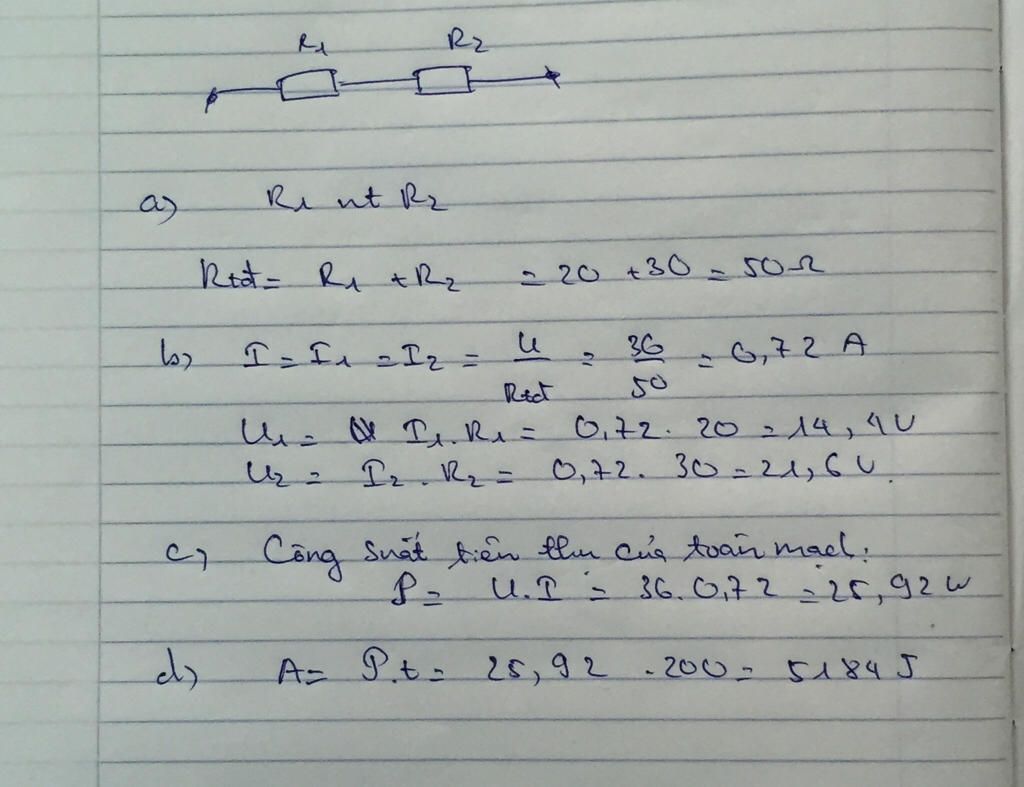 R1 R2
a) R1 nt R2
Rtđ = R1 + R2 = 20 + 30 = 50Ω
b) I = I1 = I2 = U/Rtđ = 36/50 = 0,72 A
U1 = I1.R1 = 0,72. 20 = 14,4V
U2 = I2.R2 = 0,72. 30 = 21,6 V.
c) Công suất tiên thu của toàn mạch:
P = U.I = 36.0,72 = 25,92 W
d) A = P.t = 25,92 .200 = 5184 J